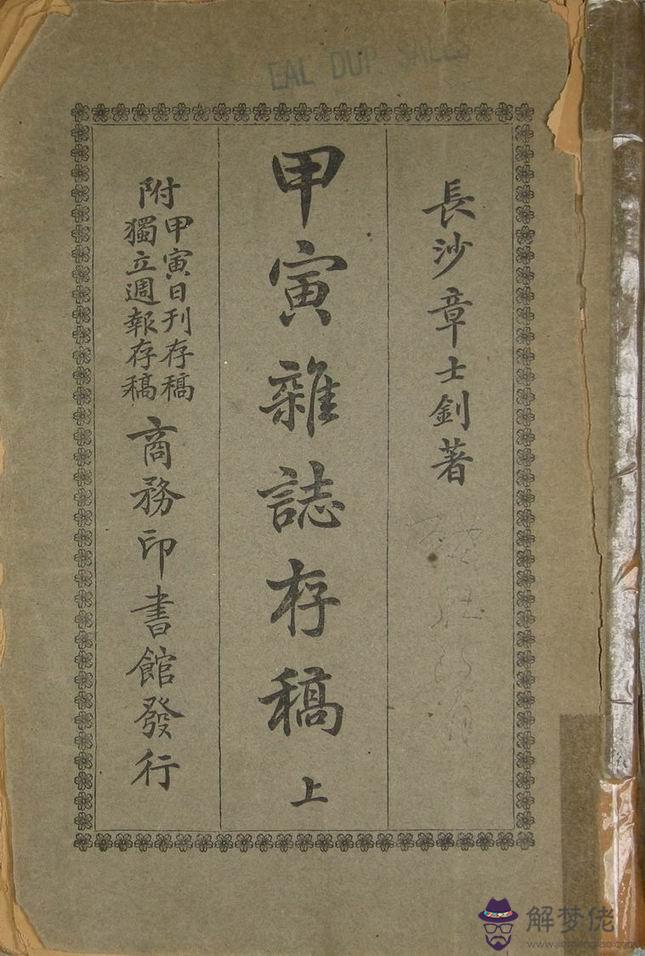 EAL DUP. SALES
長沙章士釗著
甲寅雜誌存稿 上
附 甲寅日刊存稿
獨立週報存稿
商務印書館發行
解梦佬